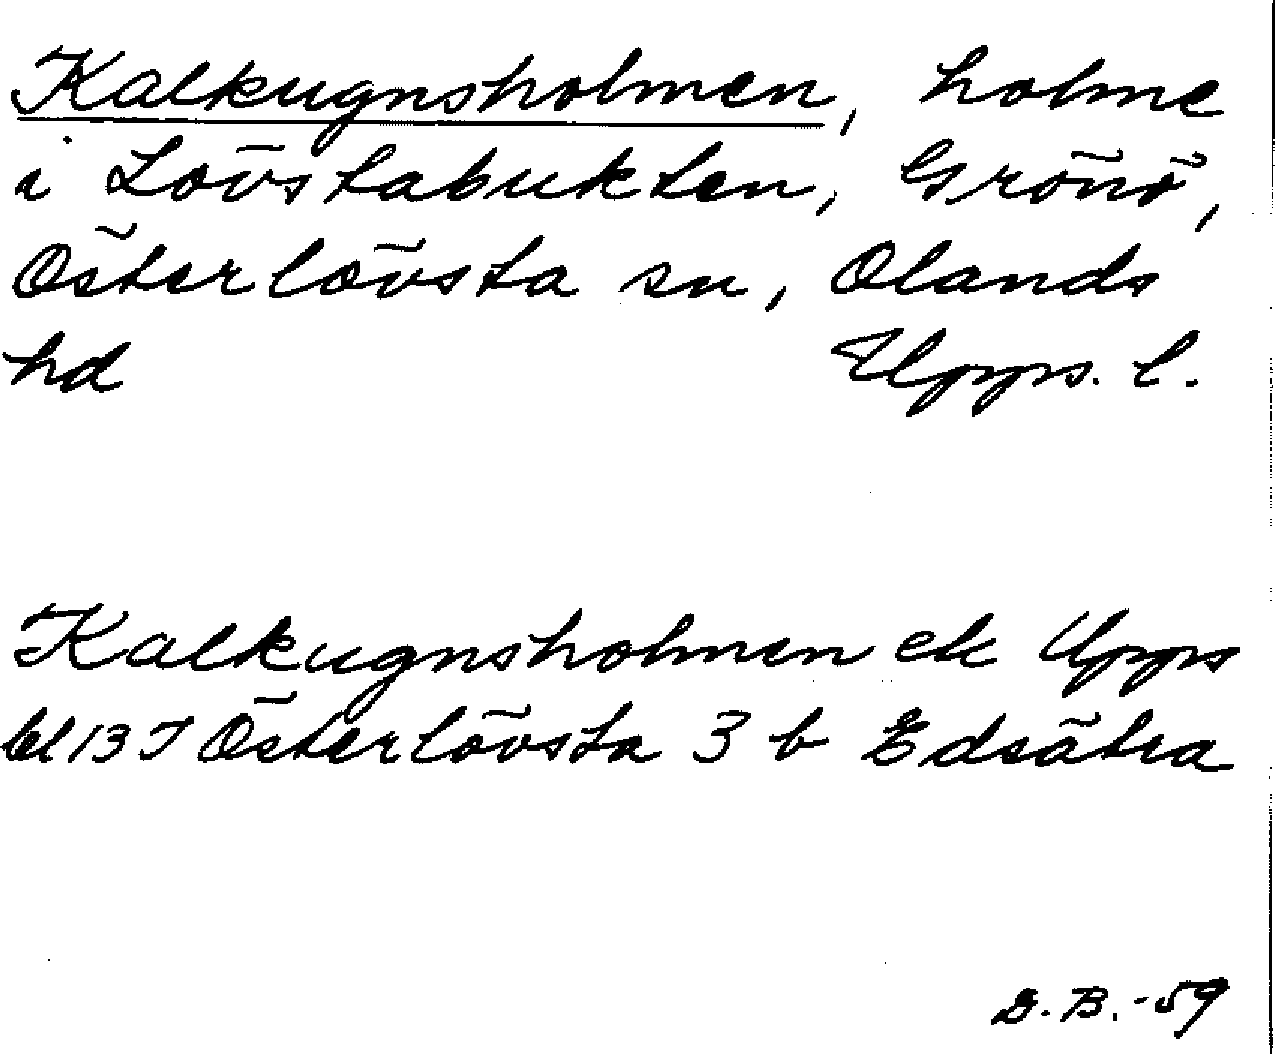 Kalkugnsholmen, holme
i Lövstabukten, Grönö,
Österlövsta sn, Olands
hd Upps. l.
Kalkugnsholmen ek Upps
bl 13 J Österlövsta 3 b Edsätra
D.B. -59